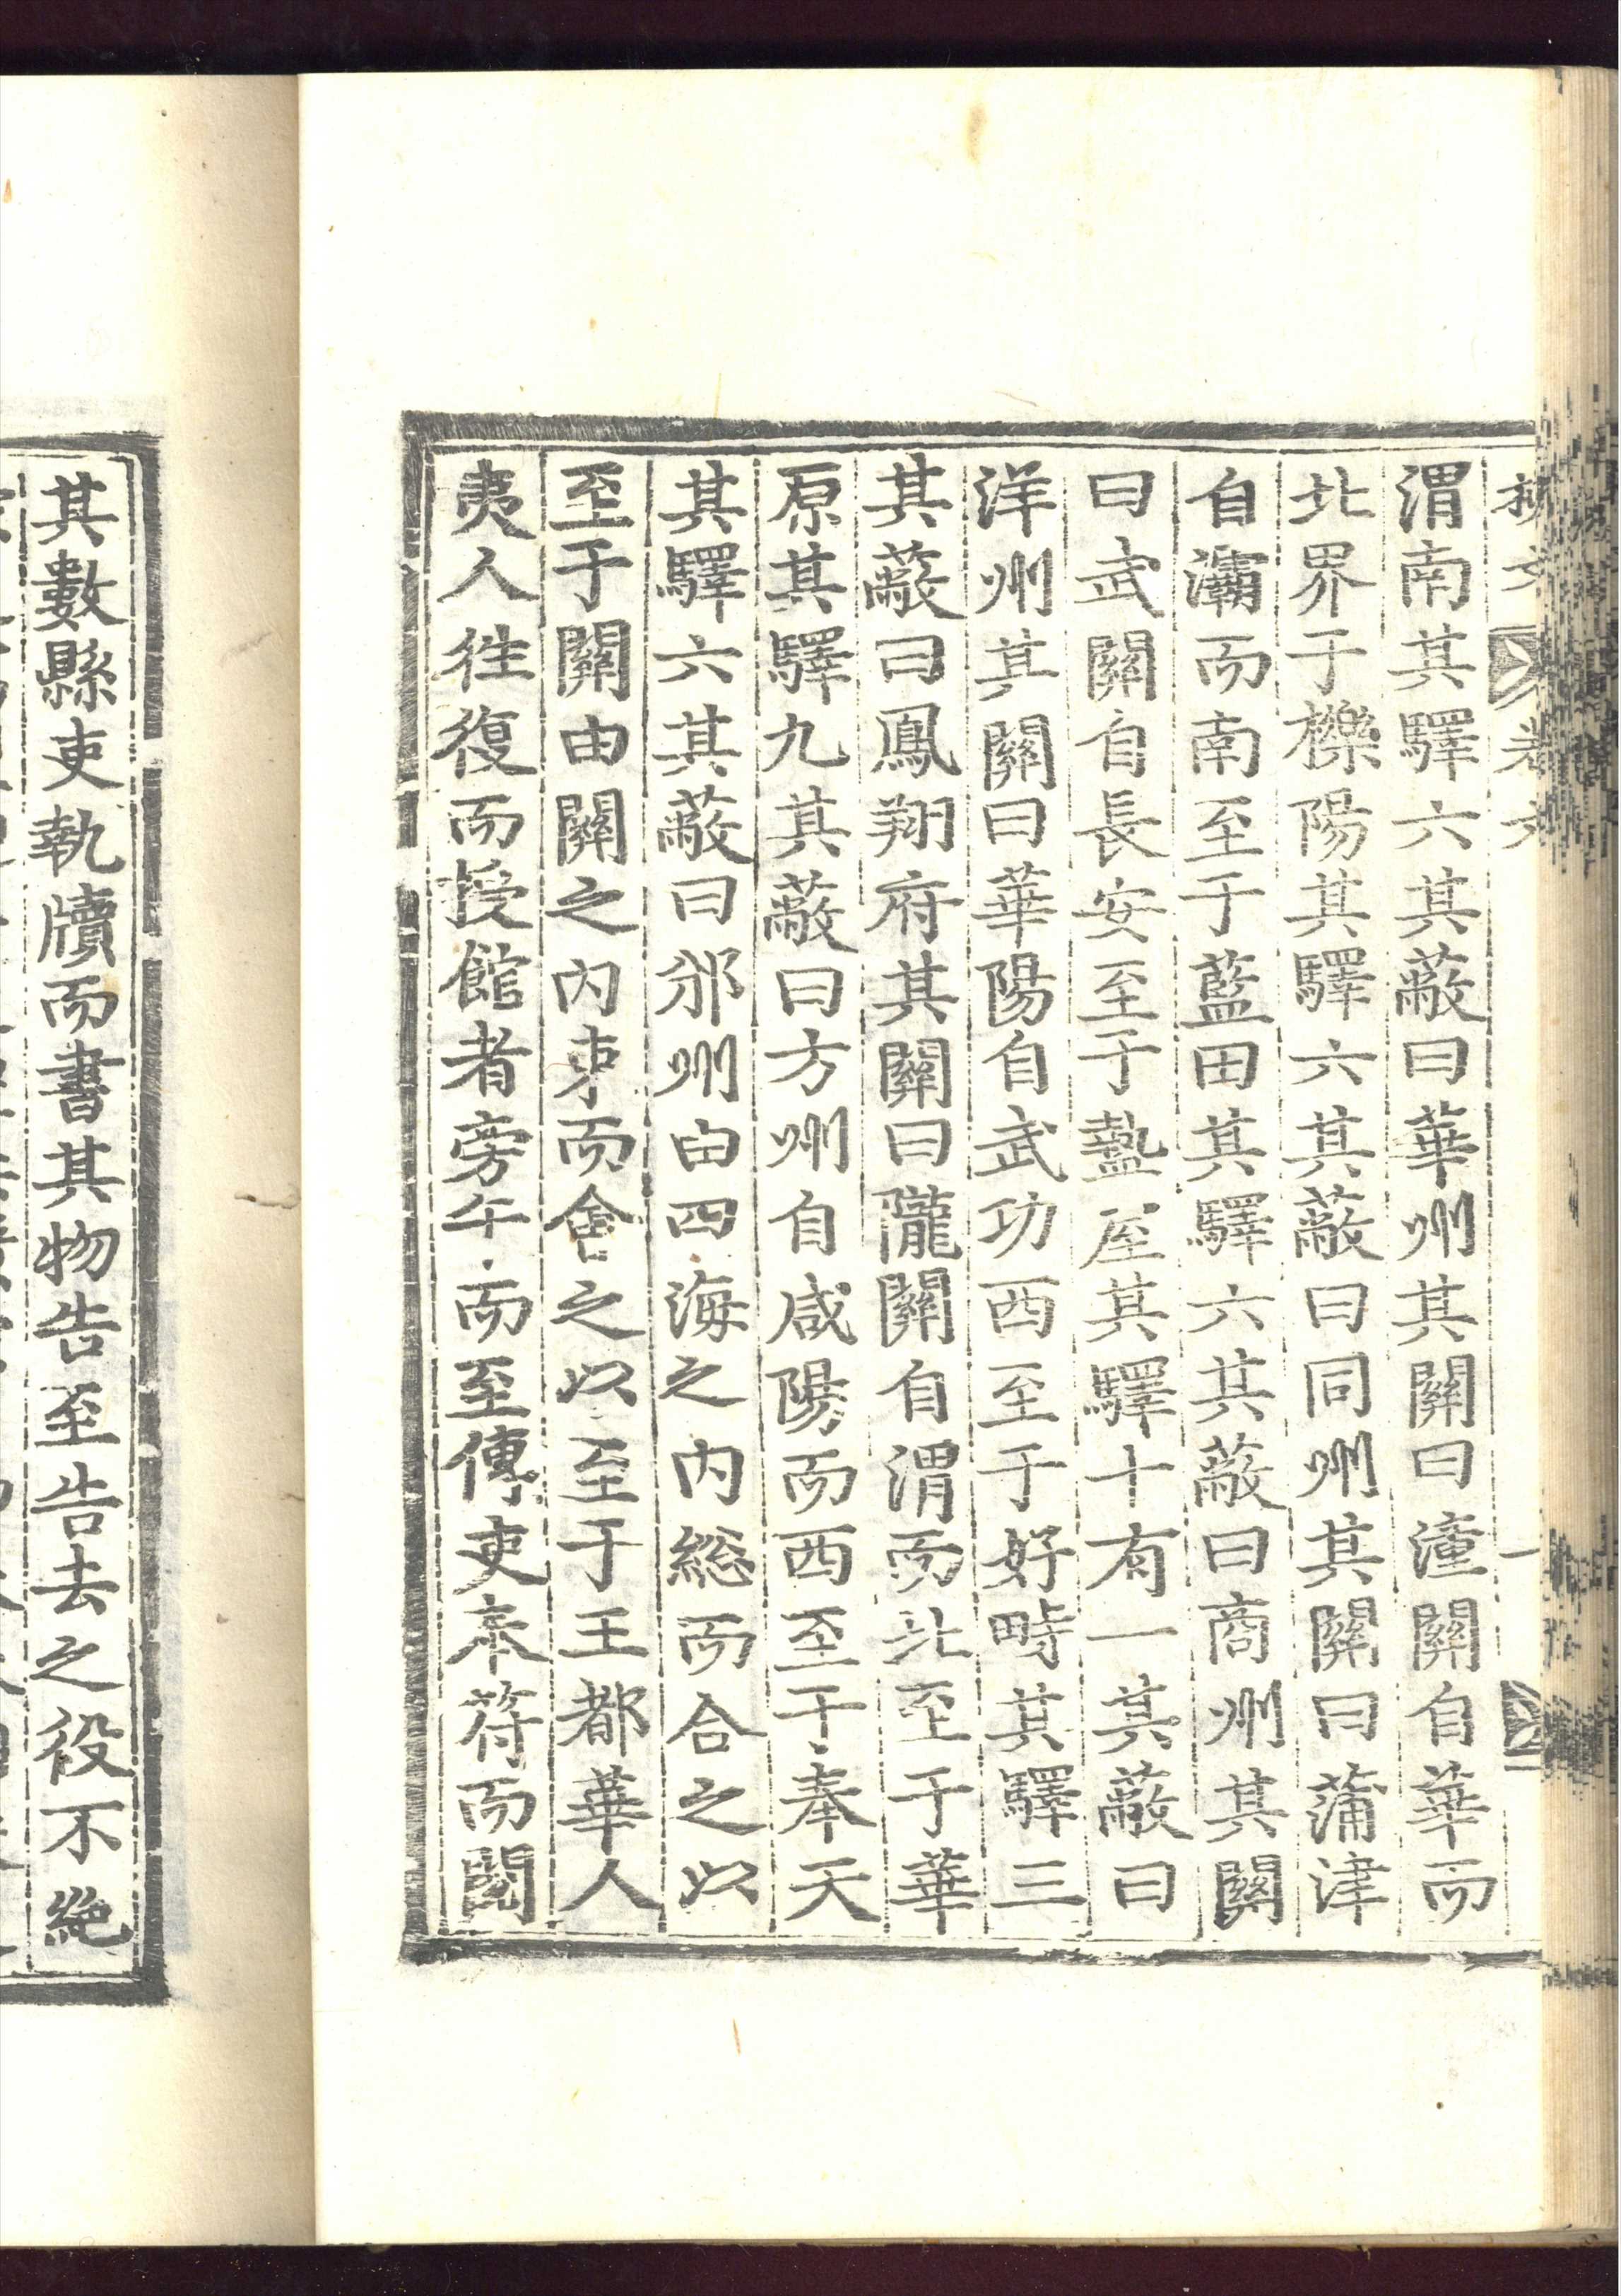 渭南其驛六其蔽曰華州其關曰潼關自華而
北界于櫟陽其驛六其蔽曰同州其關曰蒲津
自灞而南至于藍田其驛六其蔽曰商州其關
曰武關自長安至于盩厔其驛十有一其蔽曰
洋州其關曰華陽自武功西至于好畤其驛三
其蔽曰鳳翔府其關曰隴關自渭而北至于華
原其驛九其蔽曰方州自咸陽而西至于奉天
其驛六其蔽曰邠州由四海之内総而合之以
至于關由關之内束而會之以至于王都華人
夷人往復而授館者旁午而至傳吏奉符而閱
其數縣吏執牘而書其物告至告去之役不絶